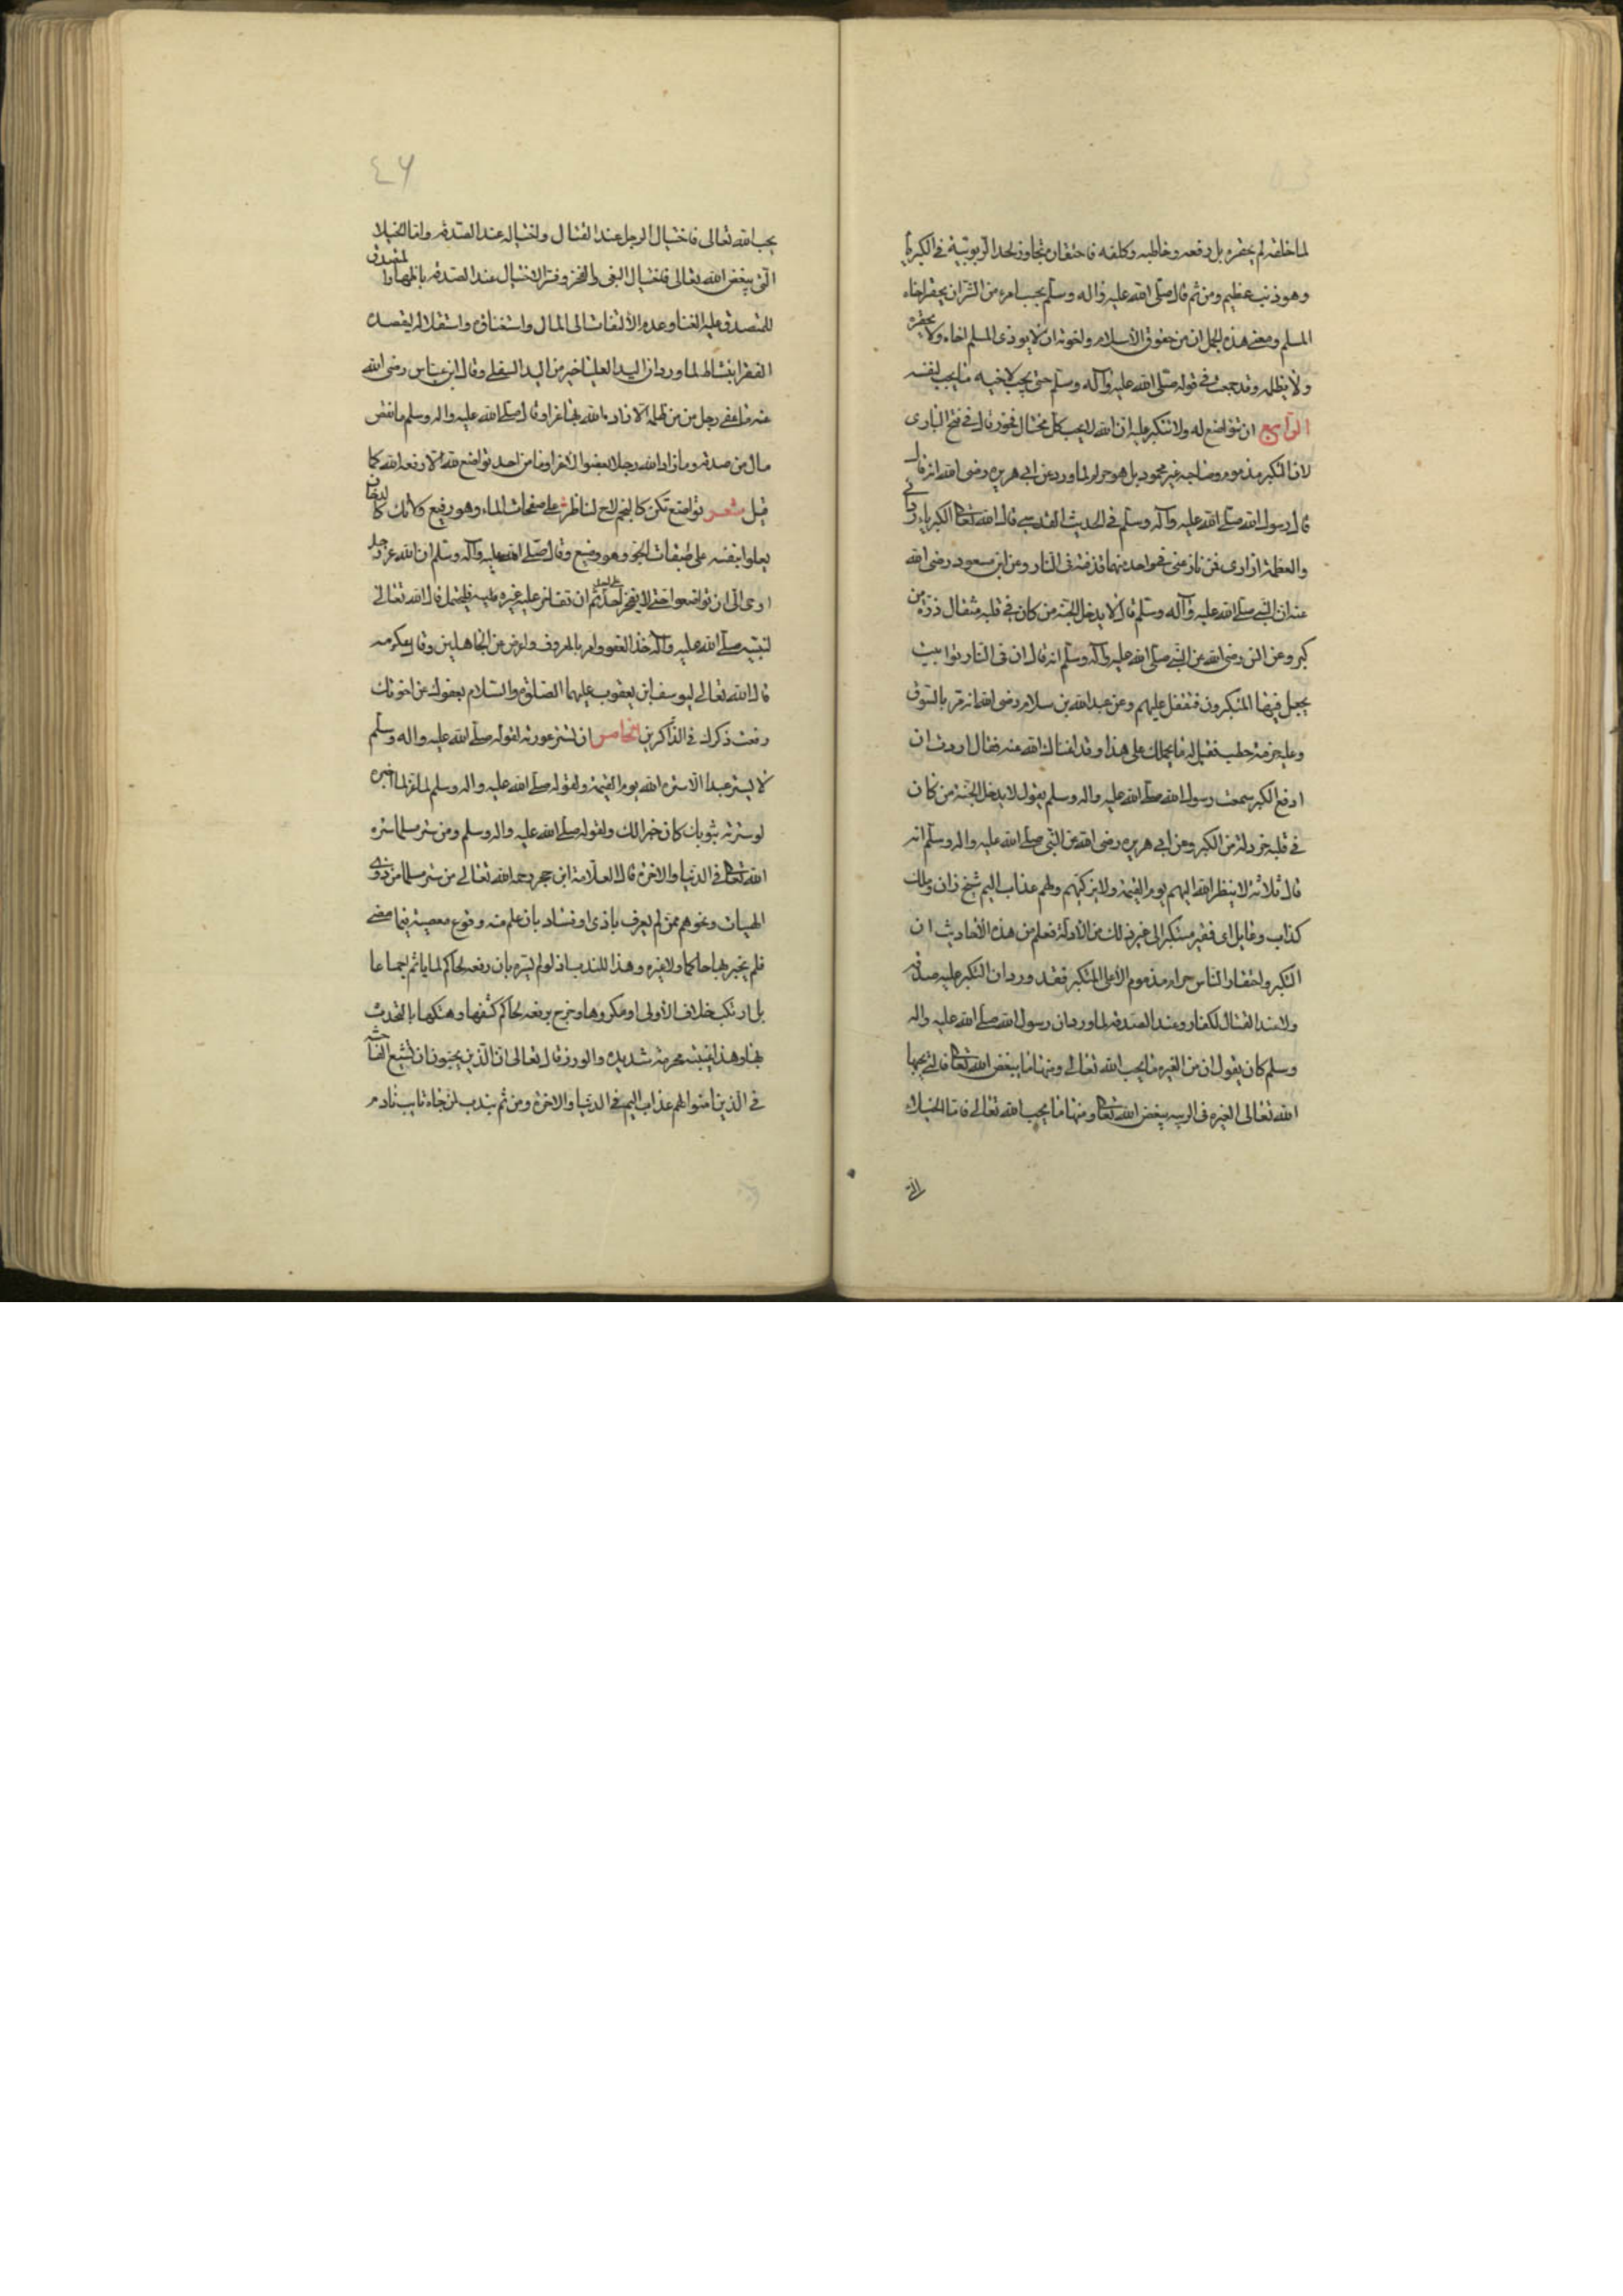 لما خلقه لم يحقره بل رفعه وخاطبه وكلفه فاحتقاره تجاوز لحد الربوبية في الكبرياء
وهو ذنب عظيم ومن ثم قال صلى الله عليه واله وسلم بحسب امرء من الشر ان يحقر اخاه
المسلم ومعنى هذه الجمل ان من حقوق الاسلام واخوته ان لا يوذى المسلم اخاه ولا يحقره
ولا يظلمه وقد جمعت في قوله صلى الله عليه وآله وسلم حتى يحب لاخيه ما يحب لنفسه
الرابع ان تواضع له ولا تتكبر عليه ان الله لا يحب كل مختال فخور قال في فتح البارى
لان التكبر مذموم وصاحبه غير محمود بل هو حرام لما ورد عن ابى هريره رضى الله انه قال
قال رسول الله صلى الله عليه وآله وسلم في الحديث القدسي قال الله تعالى الكبرياء ردائي
والعظمة ازارى فمن نازعنى في واحد منهما قذفته في النار وعن ابن مسعود رضى الله
عنه ان النبي صلى الله عليه وآله وسلم قال لا يدخل الجنة من كان في قلبه مثقال ذرة من
كبر وعن انس رضى الله عن النبي صلى الله عليه وآله وسلم انه قال ان في النار توابيت
يجعل فيها المتكبرون فتقفل عليهم وعن عبد الله بن سلام رضى الله انه مر بالسوق
وعليه حزمة حطب فقيل له ما يحملك على هذا وقد اغناك الله عنه فقال اردت ان
ادفع الكبر سمعت رسول الله صلى الله عليه واله وسلم يقول لا يدخل الجنة من كان
في قلبه خردلة من الكبر وعن ابى هريره رضى الله عن النبي صلى الله عليه واله وسلم انه
قال ثلاثة لا ينظر الله اليهم يوم القيمة ولا يزكيهم ولهم عذاب اليم شيخ زان وملك
كذاب وعايل اى فقير مستكبر الى غير ذلك من الادلة فعلم من هذه الأحاديث ان
التكبر واحتقار الناس حرام مذموم الا على المتكبر فقد ورد ان التكبر عليه صدقه
ولا عند القتال لكفار وعند الصدقه لما ورد ان رسول الله صلى الله عليه واله
وسلم كان يقول ان من الغيره ما يحب الله تعالى ومنها ما يبغض الله تعالى فالتي يحبها
الله تعالى الغيره في الريبه يبغض الله تعالى ومنها ما يحب الله تعالى فاما الخيلاء
التى
٤٦
يحب الله تعالى فاختيال الرجل عند القتال واختياله عند الصدقه واما الخيلا
التي يبغض الله تعالى فاختيال البغى والفخر وفسر الاختيال عند الصدقه باظهار المتصدق
للمتصدق عليه الغنا وعدم الألتفات الى المال واستغنائه واستقلاله ليقصده
الفقرا بنشاط لما ورد ان اليد العليا خير من اليد السفلى وقال ابن عباس رضى الله
عنه ما عفى رجل من مظلمة الا زاده الله بها عزا وقال صلى الله عليه واله وسلم ما نقص
مال من صدقه وما زاد الله رجلا بعفو الا عزا وما من احد تواضع لله الا رفعه الله كما
قيل شعر تواضع تكن كالنجم لاح لناظر على صفحات الماء وهو رفيع ولا تك كالدخان
يعلوا بنفسه على طبقات الجو وهو وضيع وقال صلى الله عليه وآله وسلم ان الله عز وجل
اوحى الى ان تواضعوا حتى لا يفخر احد على احد ثم ان تفاخر عليه غيره عليه فليحتمل قال الله تعالى
لنبيه صلى الله عليه وآله خذ العفو وامر بالمعروف واعرض عن الجاهلين وقال عكرمه
قال الله تعالى ليوسف ابن يعقوب عليهما الصلوة والسلام بعفوك عن اخوتك
رفعت ذكرك في الذاكرين الخامس ان تستر عورته لقوله صلى الله عليه واله وسلم
لا يستر عبدا الا ستره الله يوم القيمة ولقوله صلى الله عليه واله وسلم لما اخبره
لو سترته بثوبك كان خيرا لك ولقوله صلى الله عليه واله وسلم ومن ستر مسلما ستره
الله تعالى في الدنيا والاخرة قال العلامة ابن حجر رحمه الله تعالى من ستر مسلما من ذوى
الهيات ونحوهم ممن لم يعرف باذى او فساد بان علم منه وقوع معصية فيما مضى
فلم يخبر بها حاكما ولا غيره وهذا للندب اذ لو لم يستره بان رفعه لحاكم لما ياثم اجماعا
بل ارتكب خلاف الأولى او مكروها وخرج برفعه لحاكم كشفها وهتكها بالتحدث
بها وهذا غيبة محرمة شديده والوزر قال تعالى ان الذين يحبون ان تشيع الفاحشه
في الذين امنوا لهم عذاب اليم في الدنيا والاخرة ومن ثم يندب لمن جاه تايب نادم